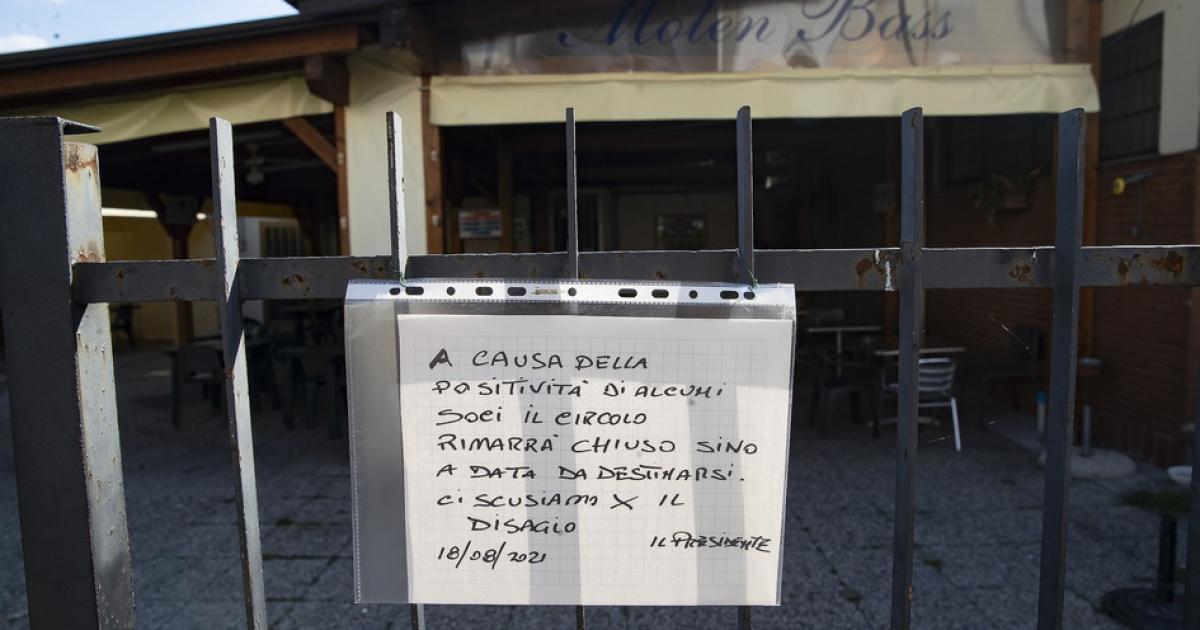 Molen Bass
A CAUSA DELLA
POSITIVITA' DI ALCUNI
SOCI IL CIRCOLO
RIMARRA' CHIUSO SINO
A DATA DA DESTINARSI.
CI SCUSIAMO X IL
DISAGIO
IL PRESIDENTE
18/08/2021